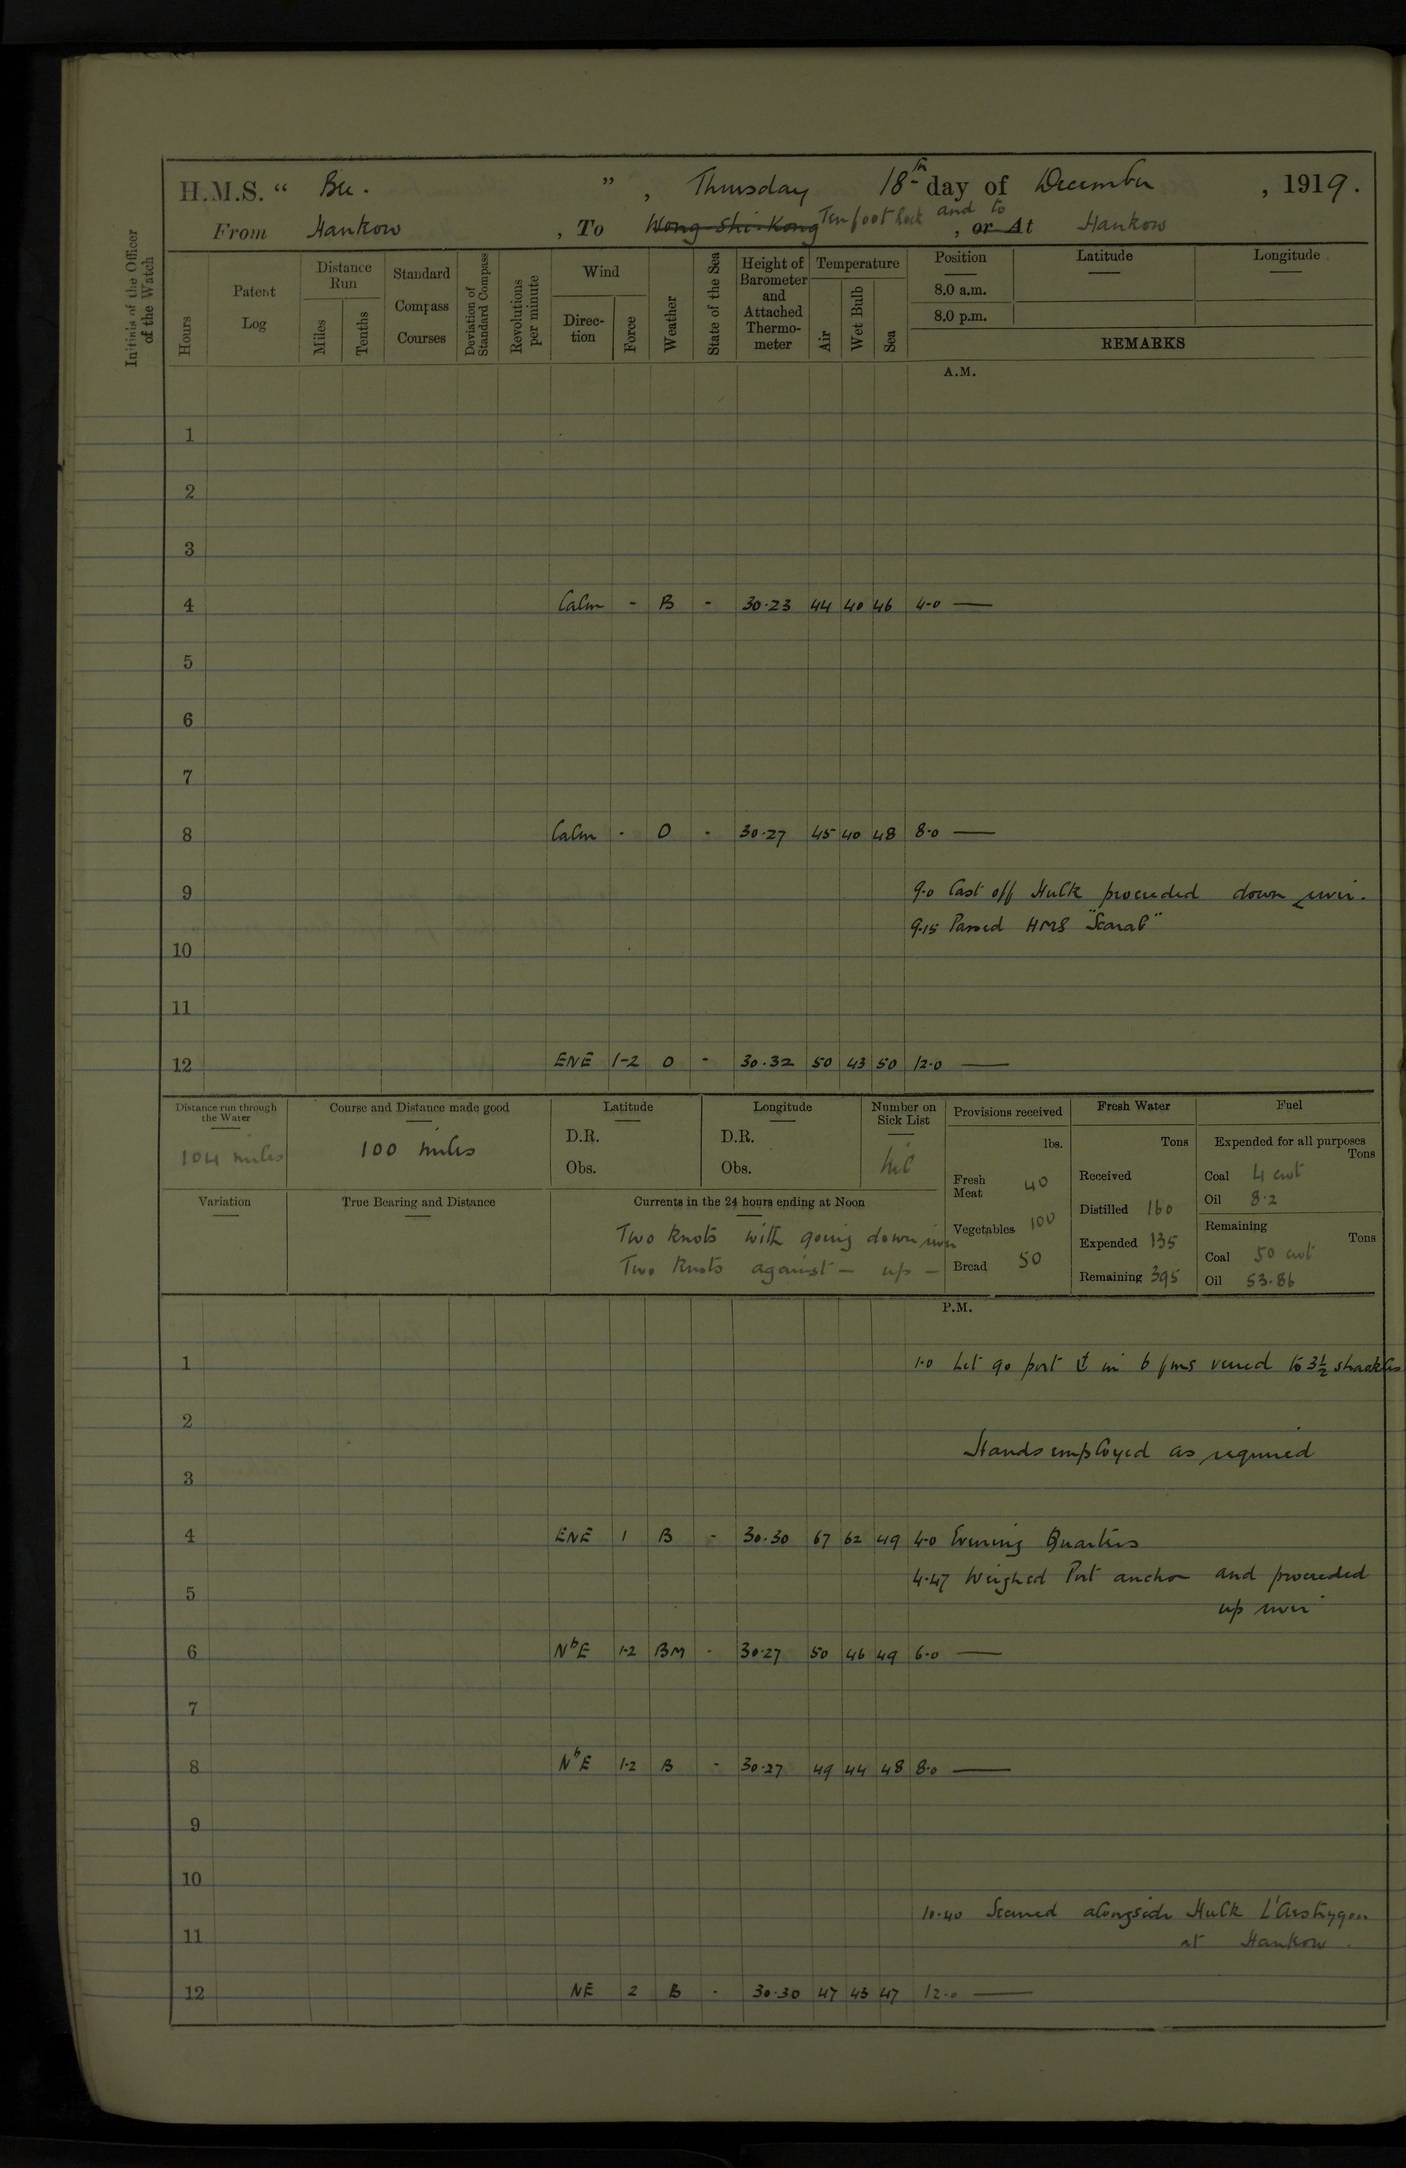 H.M.S. “ Bee. ” , Thursday 18th day of December , 1919.
From Hankow , To Wong-Shi-Kong Ten foot Rock and to , or At Hankow
Initials of the Officer of the Watch
Hours
Patent Log
Distance Run
Miles
Tenths
Standard Compass Courses
Deviation of Standard Compass
Revolutions per minute
Wind
Direction
Force
Weather
State of the Sea
Height of Barometer and Attached Thermometer
Temperature
Air
Wet Bulb
Sea
Position
8.0 a.m.
8.0 p.m.
Latitude
Longitude
REMARKS
A.M.
1
2
3
4 Calm - B - 30.23 44 40 46 4-0 —
5
6
7
8 Calm - O - 30.27 45 40 48 8-0 —
9 9-0 Cast off Hulk proceeded down river.
9.15 Passed HMS "Scarab"
10
11
12 ENE 1-2 O - 30.32 50 43 50 12-0 —
Distance run through the Water
104 miles
Course and Distance made good
100 miles
Latitude
D.R.
Obs.
Longitude
D.R.
Obs.
Number on Sick List
Nil
Variation
True Bearing and Distance
Currents in the 24 hours ending at Noon
Two knots with going down river
Two knots against — up —
Provisions received
lbs.
Fresh Meat 40
Vegetables 100
Bread 50
Fresh Water
Tons
Received
Distilled 160
Expended 135
Remaining 395
Fuel
Expended for all purposes
Tons
Coal 4 cwt
Oil 8.2
Remaining
Tons
Coal 50 cwt
Oil 53.86
P.M.
1 1-0 Let go port ⚓ in 6 fms veered to 3½ shackles
2
Hands employed as required
3
4 ENE 1 B - 30.30 67 62 49 4-0 Evening Quarters
4.47 Weighed Port anchor and proceeded
5 up river
6 NbE 1-2 BM - 30.27 50 46 49 6-0 —
7
8 NbE 1-2 B - 30.27 49 44 48 8-0 —
9
10
10-40 Secured alongside Hulk L'Aestrygon
11 at Hankow.
12 NE 2 B - 30.30 47 43 47 12-0 —